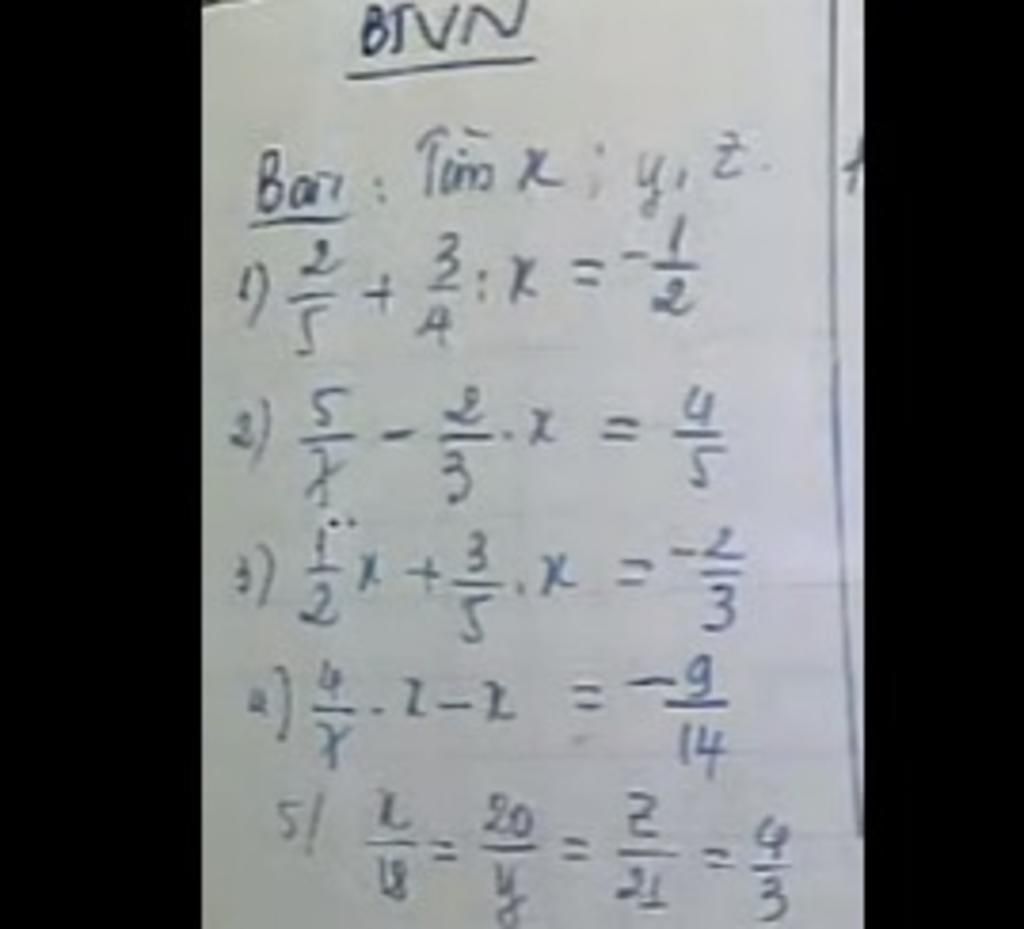 BTVN
Bài: Tìm x; y, z.
1) 2/5 + 3/4 : x = -1/2
2) 5/7 - 2/3 . x = 4/5
3) 1/2 x + 3/5 . x = -2/3
4) 4/7 . x - x = -9/14
5/ x/18 = 20/y = z/21 = 4/3